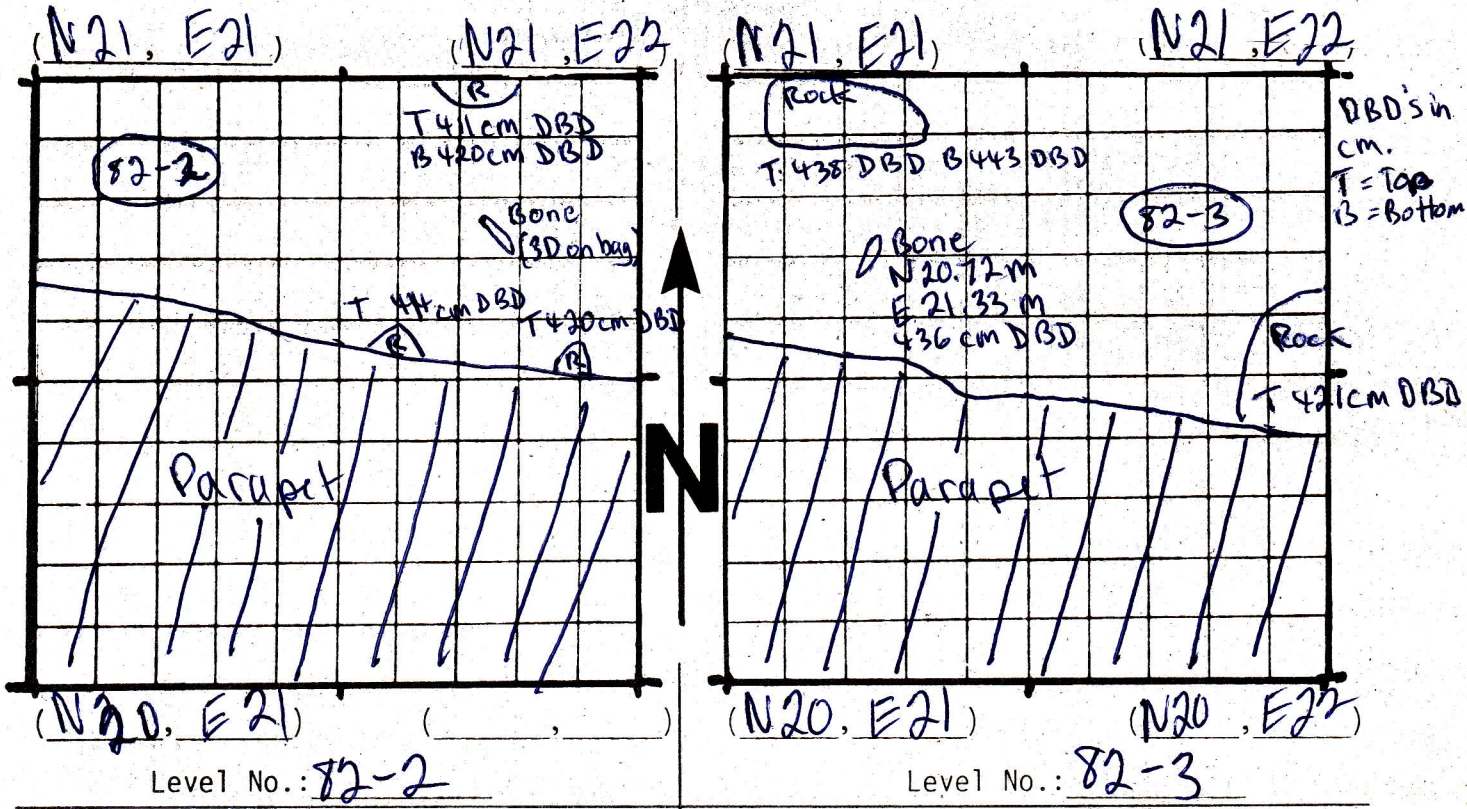 (N21, E21)
(N21, E22
R
T 411 cm DBD
B 420 cm DBD
82-2
Bone
(3D on bag)
T 414 cm DBD
R
T 420 cm DBD
R
Parapet
(N20, E21)
( , )
Level No.: 82-2
N
(N21, E21)
(N21, E22
Rock
T. 438 DBD B 443 DBD
DBD's in
cm.
T = Top
B = Bottom
82-3
Bone
N 20.72 m
E 21.33 m
436 cm DBD
Rock
T 421cm DBD
Parapet
(N20, E21)
(N20, E22)
Level No.: 82-3